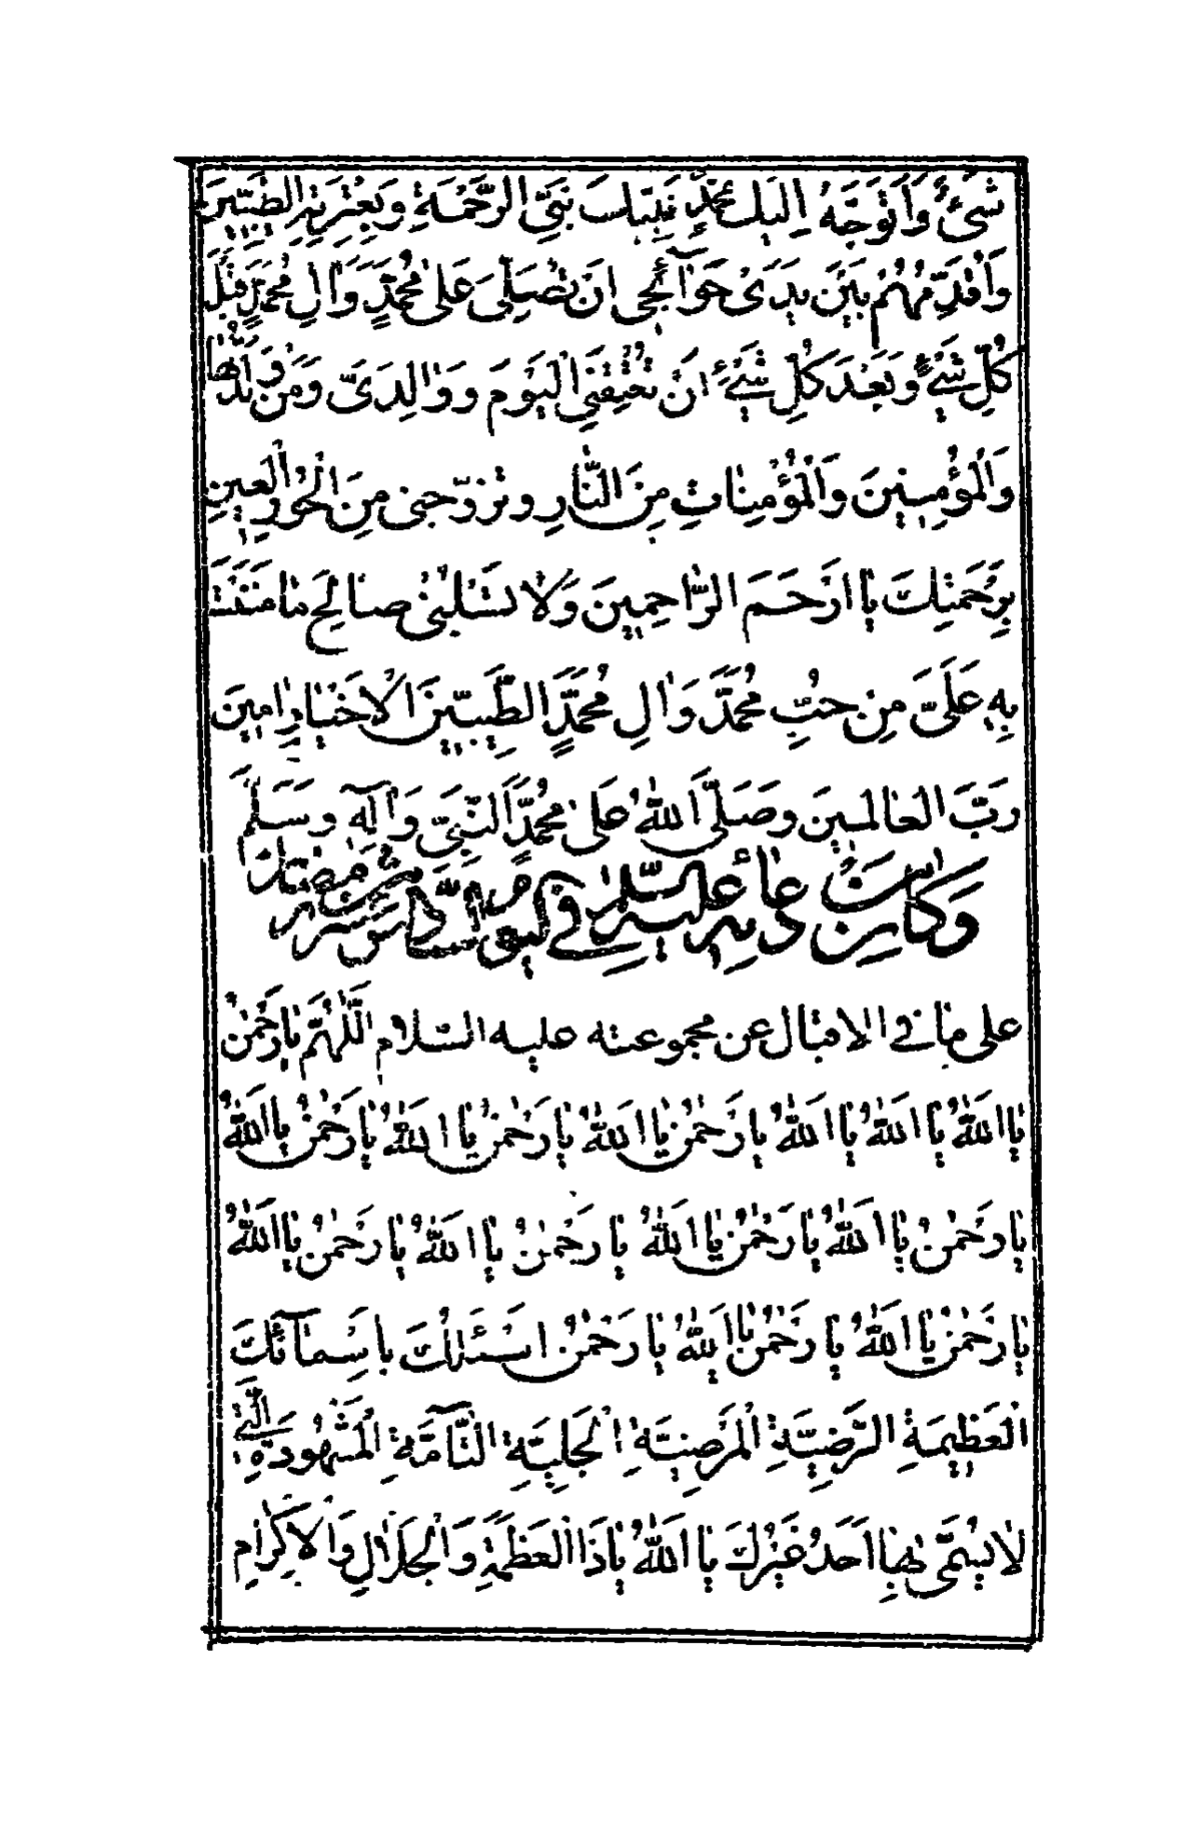 شَىْءٌ وَاَتَوَجَّهُ اِلَيْكَ بِمُحَمَّدٍ نَبِيِّكَ نَبِىِّ الرَّحْمَةِ وَبِعِتْرَتِهِ الطَّيِّبِينَ
وَاُقَدِّمُهُمْ بَيْنَ يَدَىْ حَوَآئِجِى اَنْ تُصَلِّىَ عَلىٰ مُحَمَّدٍ وَاٰلِ مُحَمَّدٍ قَبْلَ
كُلِّ شَىْءٍ وَبَعْدَ كُلِّ شَىْءٍ اَنْ تُعْتِقَنِى الْيَوْمَ وَوٰالِدَىَّ وَمَنْ وَلَدٰا
وَالْمُؤْمِنِينَ وَالْمُؤْمِنٰاتِ مِنَ النّٰارِ وتزوّجنى مِنَ الْحُورِ الْعِينِ
بِرَحْمَتِكَ يٰا اَرْحَمَ الرّٰاحِمِينَ وَلاٰ تَسْلُبْنِى صٰالِحَ مٰا مَنَنْتَ
بِهِ عَلَىَّ مِنْ حُبِّ مُحَمَّدٍ وَاٰلِ مُحَمَّدٍ الطَّيِّبِينَ الْاَخْيٰارِ اٰمِينَ
رَبَّ الْعٰالَمِينَ وَصَلَّى اللّٰهُ عَلىٰ مُحَمَّدٍ النَّبِىِّ وَاٰلِهِ وَسَلَّمَ
وَكَانَ مِنْ دُعَائِهِ عَلَيْهِ السَّلَامُ فِي الْيَوْمِ السَّادِسِ عَشَرَ مِنْ شَهْرِ رَمَضَانَ
على ما فى الاقبال عن مجموعته عليه السّلام اَللّٰهُمَّ يٰا رَحْمٰنُ
يٰا اَللّٰهُ يٰا اَللّٰهُ يٰا اَللّٰهُ يٰا رَحْمٰنُ يٰا اَللّٰهُ يٰا رَحْمٰنُ يٰا اَللّٰهُ يٰا رَحْمٰنُ يٰا اَللّٰهُ
يٰا رَحْمٰنُ يٰا اَللّٰهُ يٰا رَحْمٰنُ يٰا اَللّٰهُ يٰا رَحْمٰنُ يٰا اَللّٰهُ يٰا رَحْمٰنُ يٰا اَللّٰهُ
يٰا رَحْمٰنُ يٰا اَللّٰهُ يٰا رَحْمٰنُ يٰا اَللّٰهُ يٰا رَحْمٰنُ اَسْئَلُكَ بِاَسْمٰآئِكَ
الْعَظِيمَةِ الرَّضِيَّةِ الْمَرْضِيَّةِ الْجَلِيَّةِ التّٰآمَّةِ الْمَشْهُودَةِ الَّتِى
لاٰ يُسَمّٰى بِهٰا اَحَدٌ غَيْرُكَ يٰا اَللّٰهُ يٰا ذَا الْعَظَمَةِ وَالْجَلاٰلِ وَالْاِكْرٰامِ